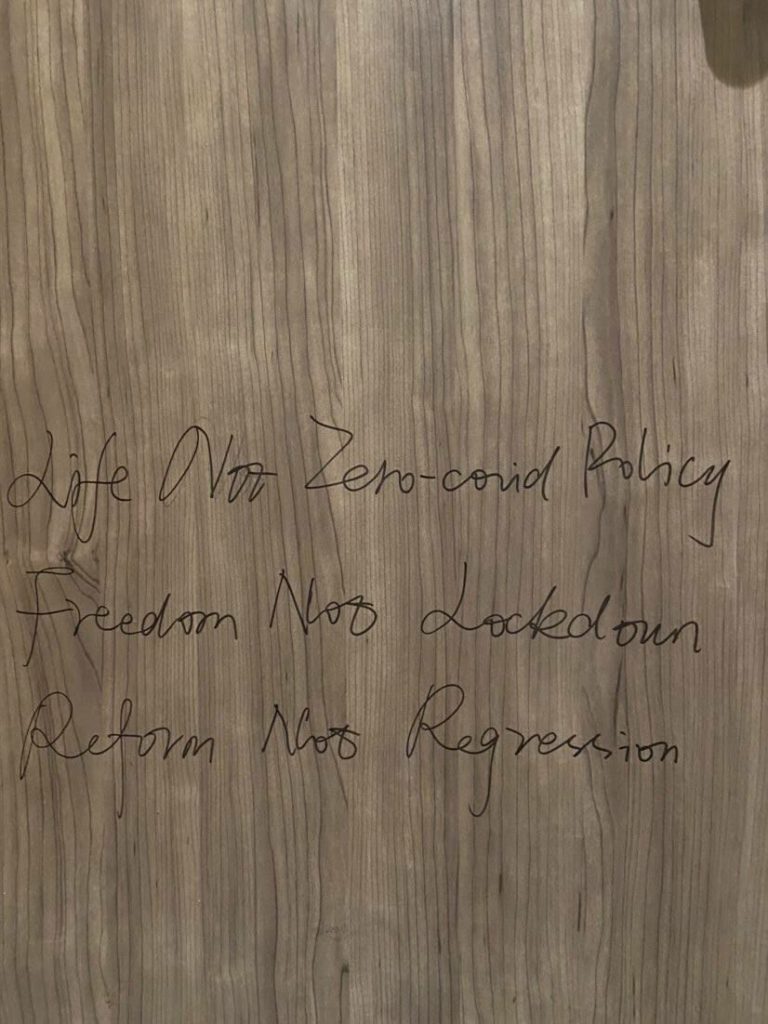 Life Not Zero-covid Policy
Freedom Not Lockdown
Reform Not Regression